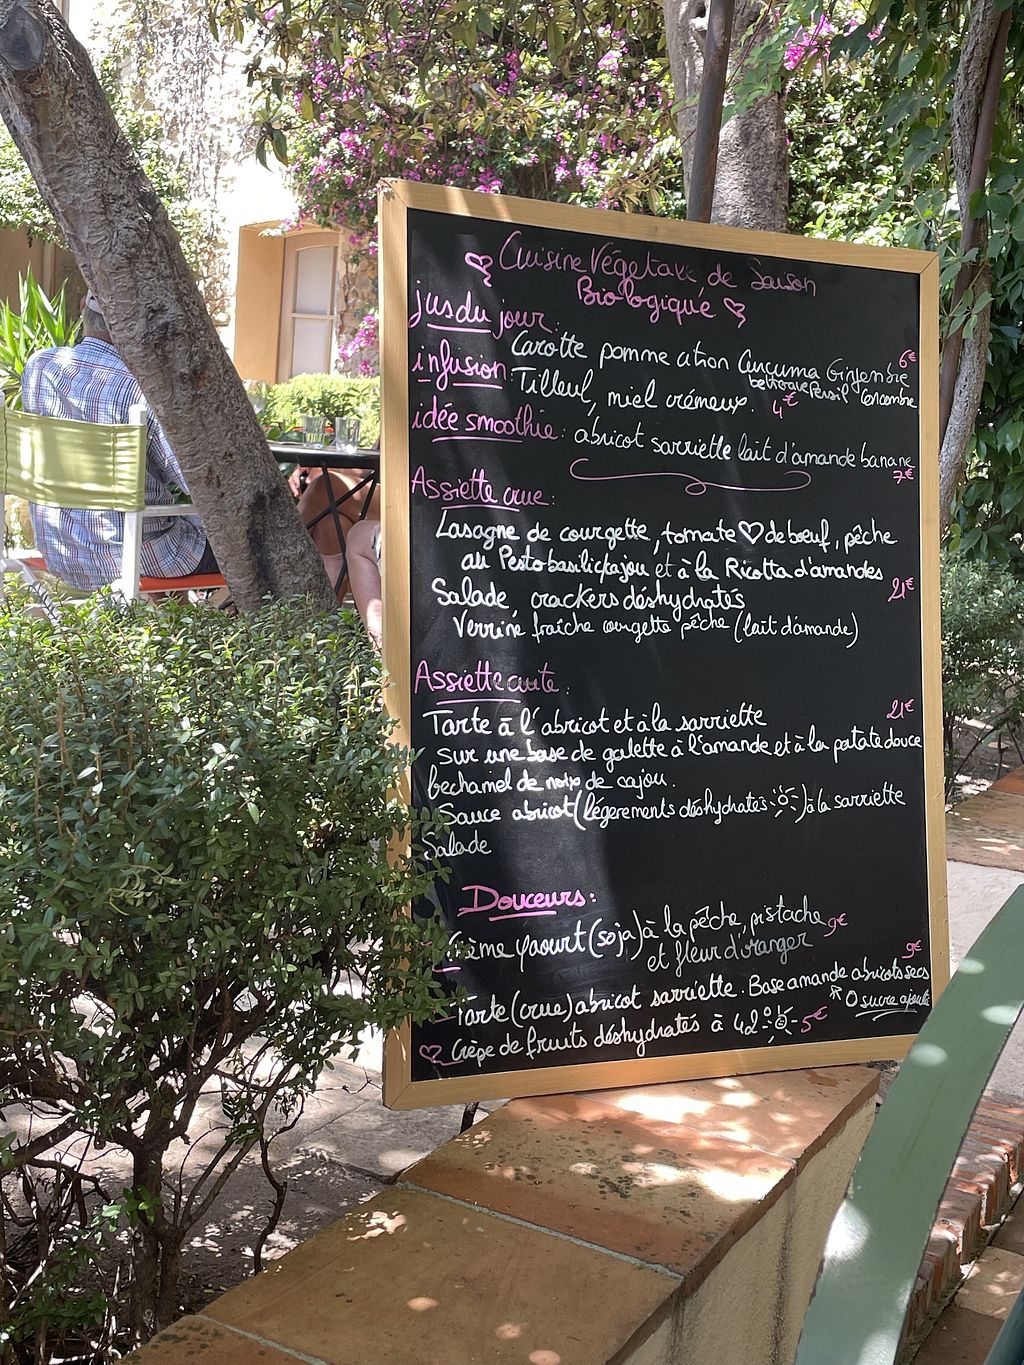 Cuisine Végétale de Saison
Biologique
jus du jour:
Carotte pomme citron Curcuma Gingembre 6€
betterave Persil Concombre
infusion: Tilleul, miel crémeux. 4€
idée smoothie: abricot sarriette lait d'amande banane
7€
Assiette crue:
Lasagne de courgette, tomate ♡ de boeuf, pêche
au Pesto basilic/cajou et à la Ricotta d'amandes
Salade, crackers déshydratés 21€
Verrine fraîche courgette pêche (lait d'amande)
Assiette cuite:
Tarte à l'abricot et à la sarriette 21€
sur une base de galette à l'amande et à la patate douce
bechamel de noix de cajou.
Sauce abricot (légerements déshydratés) à la sarriette
Salade
Douceurs:
- Crème yaourt (soja) à la pêche, pistache 9€
et fleur d'oranger
9€
- Tarte (crue) abricot sarriette. Base amande abricots secs
0 sucre ajouté
Crèpe de fruits déshydratés à 42° 5€